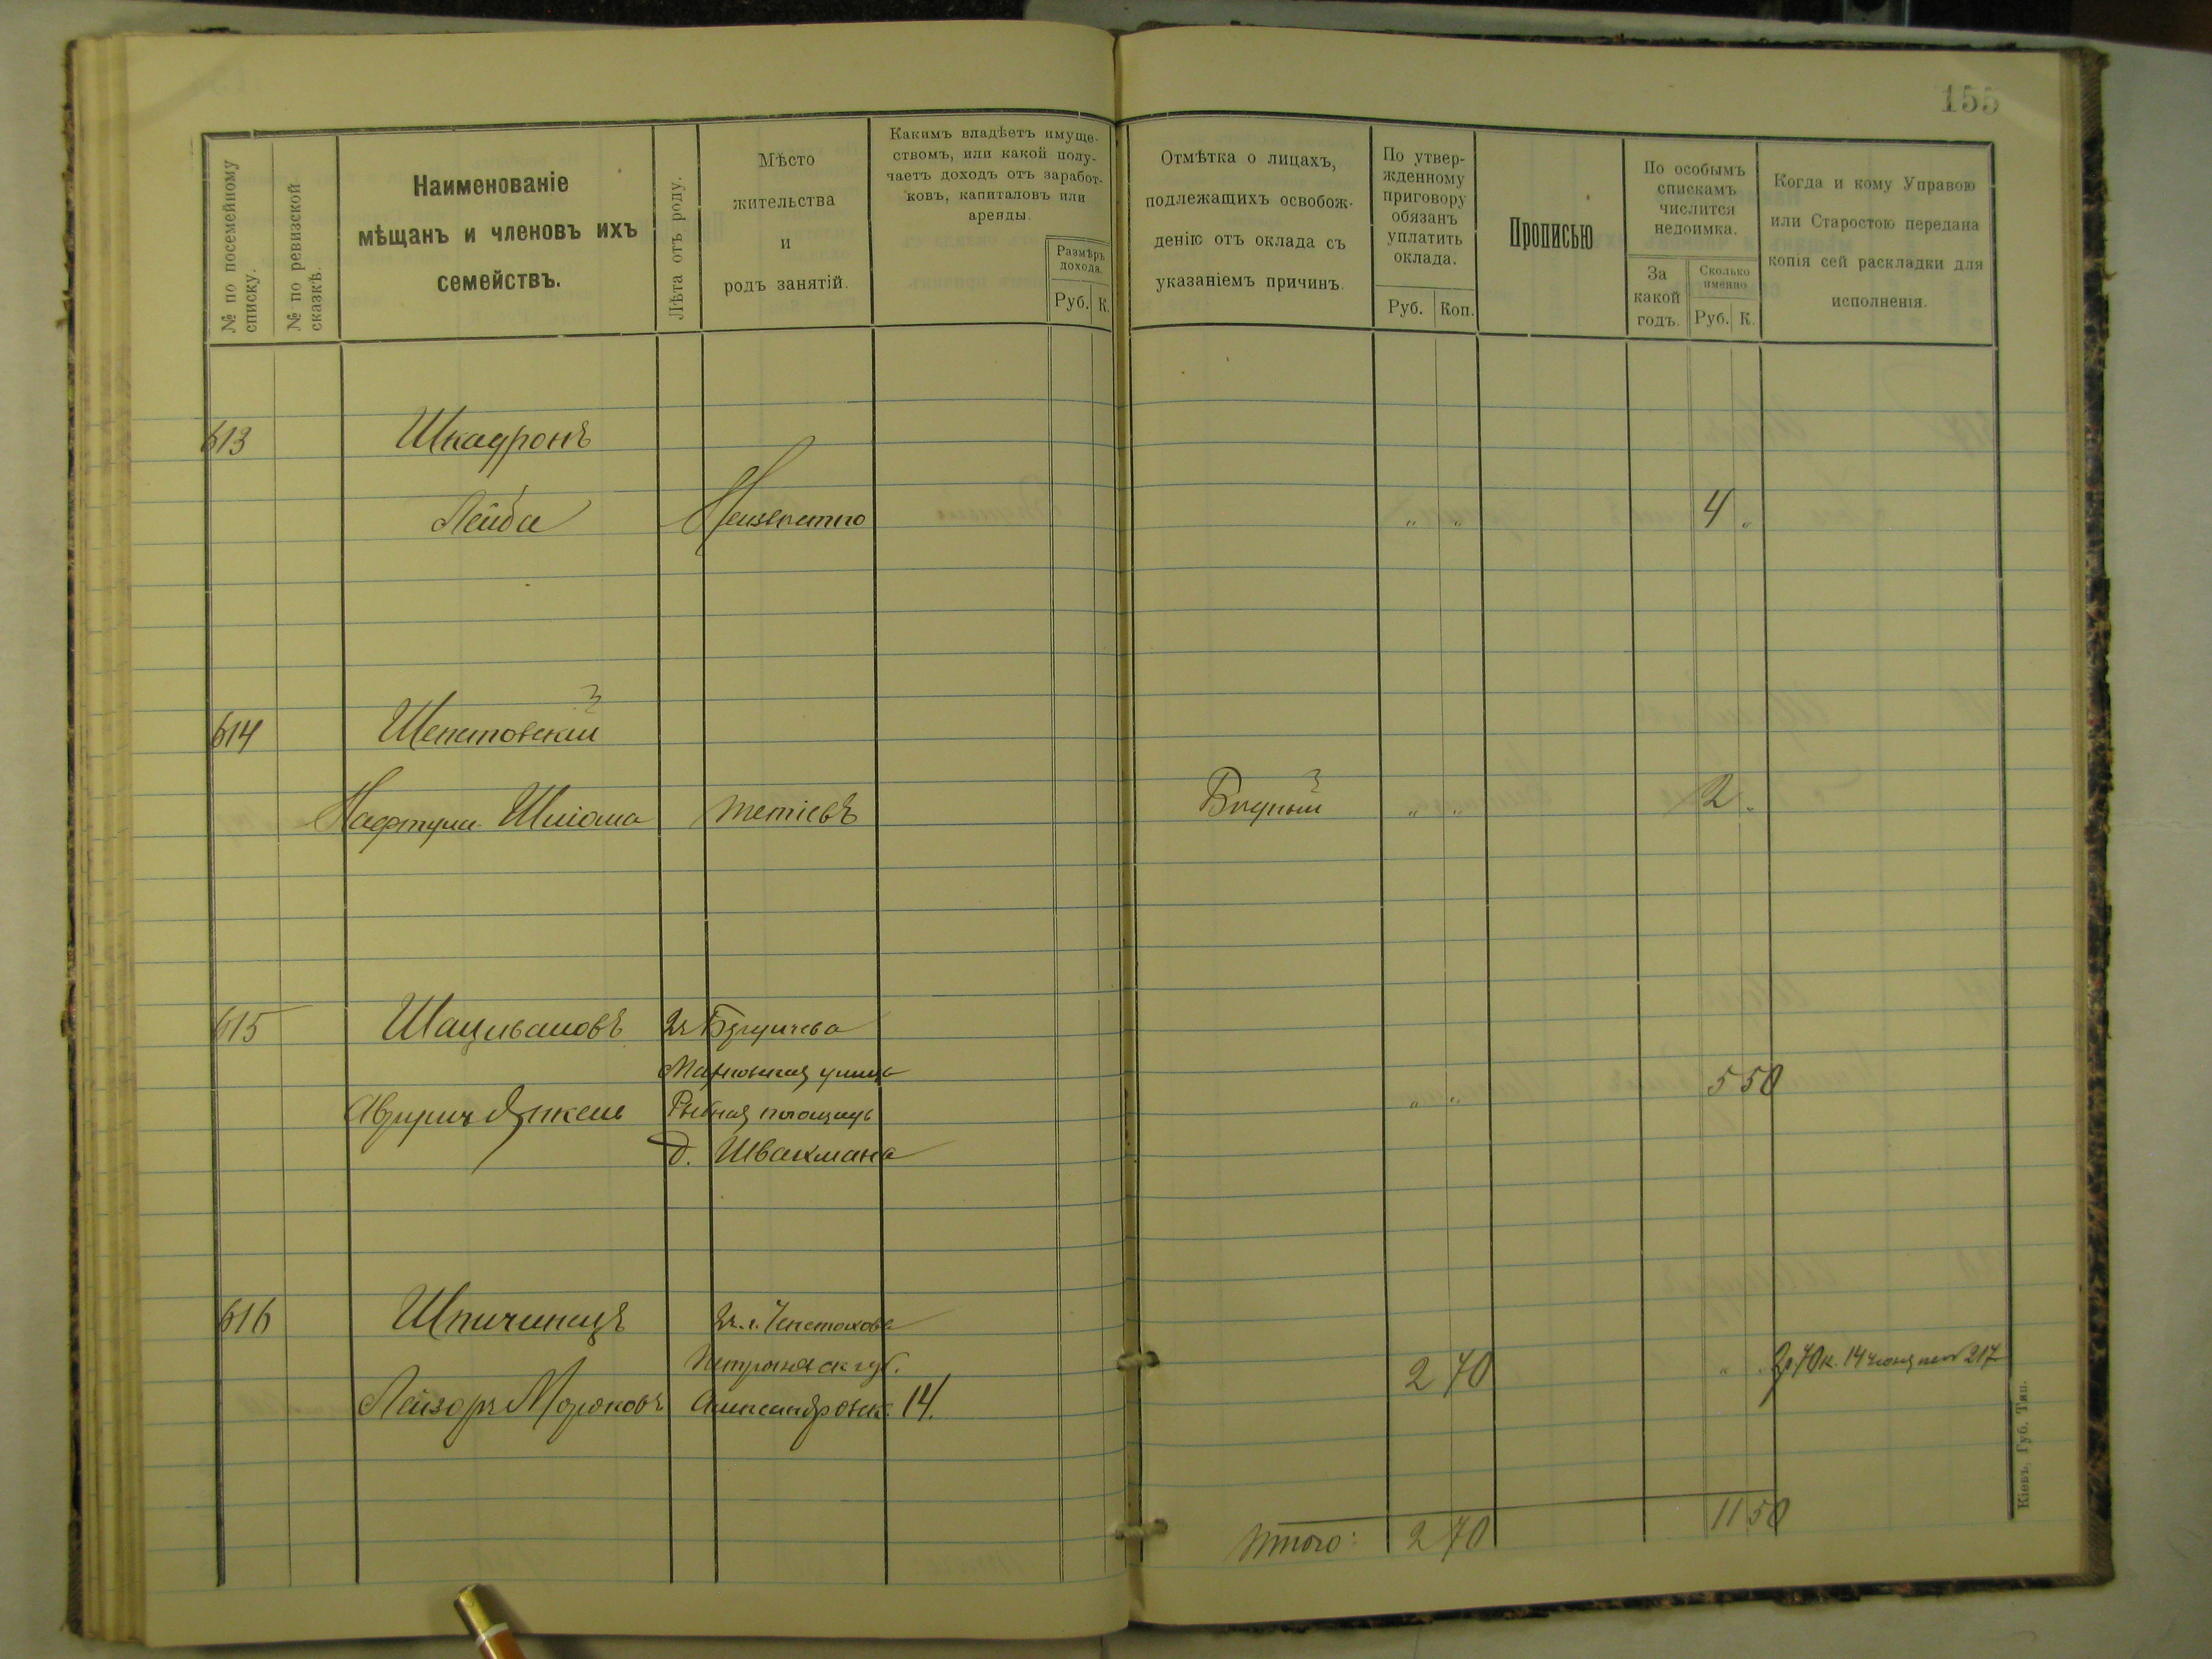 155
№ по посемейному списку.
№ по ревизской сказкѣ.
Наименованіе
мѣщанъ и членовъ ихъ
семействъ.
Лѣта отъ роду.
Мѣсто
жительства
и
родъ занятій.
Какимъ владѣетъ имуще-
ствомъ, или какой полу-
чаетъ доходъ отъ заработ-
ковъ, капиталовъ или
аренды.
Размѣръ
дохода.
Руб. К.
Отмѣтка о лицахъ,
подлежащихъ освобож-
денію отъ оклада съ
указаніемъ причинъ.
По утвер-
жденному
приговору
обязанъ
уплатить
оклада.
Руб. Коп.
Прописью
По особымъ
спискамъ
числится
недоимка.
За
какой
годъ.
Сколько
именно
Руб. К.
Когда и кому Управою
или Старостою передана
копія сей раскладки для
исполненія.
613 Шкадронъ
Лейба Неизвѣстно " " 4 "
614 Шепетовскій
Нафтула Шліома Тетіевъ Бѣдный " " 2 "
615
Рыбная площадь " " 5 50
д. Швахмана
616 Шпичинецъ
Лейзоръ Александровск. 14. 2 70 "
2р 70к. 14 217
Итого: 2 70 11 50
Кіевъ, Губ. Тип.